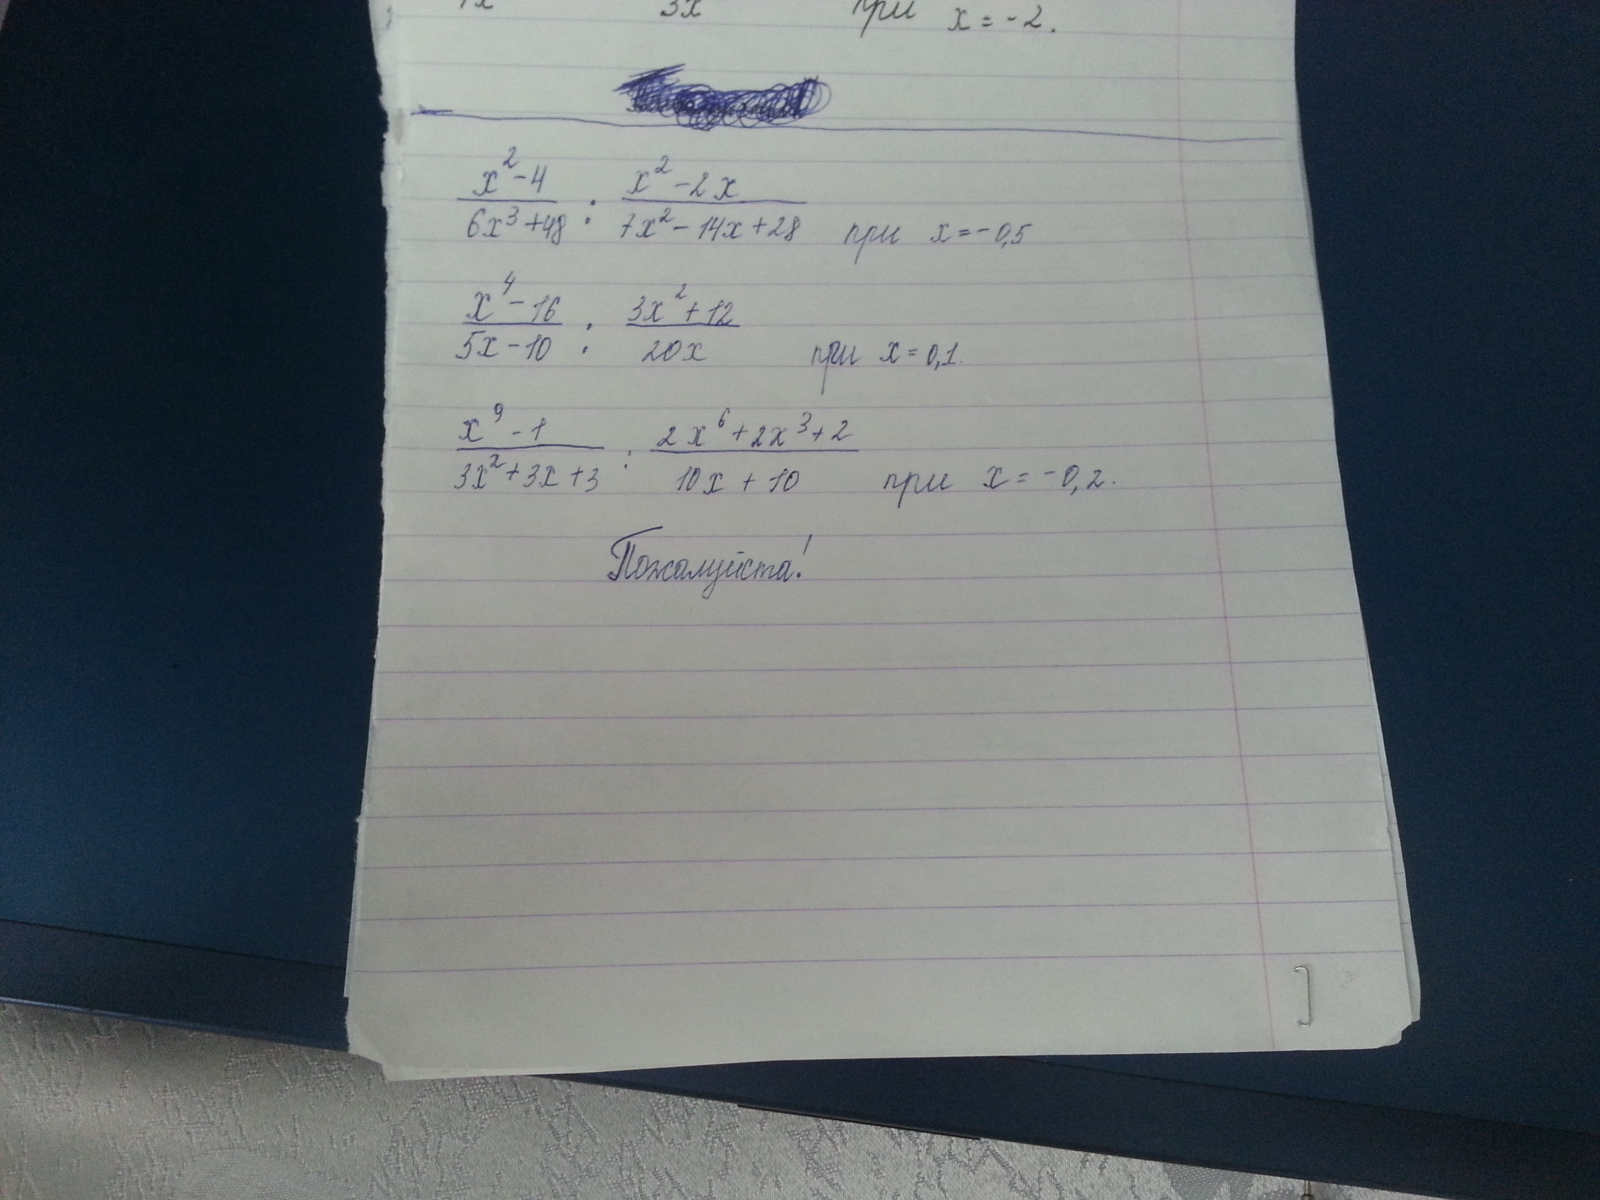 3x при x = -2.
x² - 4 / 6x³ + 48 : x² - 2x / 7x² - 14x + 28 при x = -0,5
x⁴ - 16 / 5x - 10 : 3x² + 12 / 20x при x = 0,1.
x⁹ - 1 / 3x² + 3x + 3 : 2x⁶ + 2x³ + 2 / 10x + 10 при x = -0,2.
Пожалуйста!